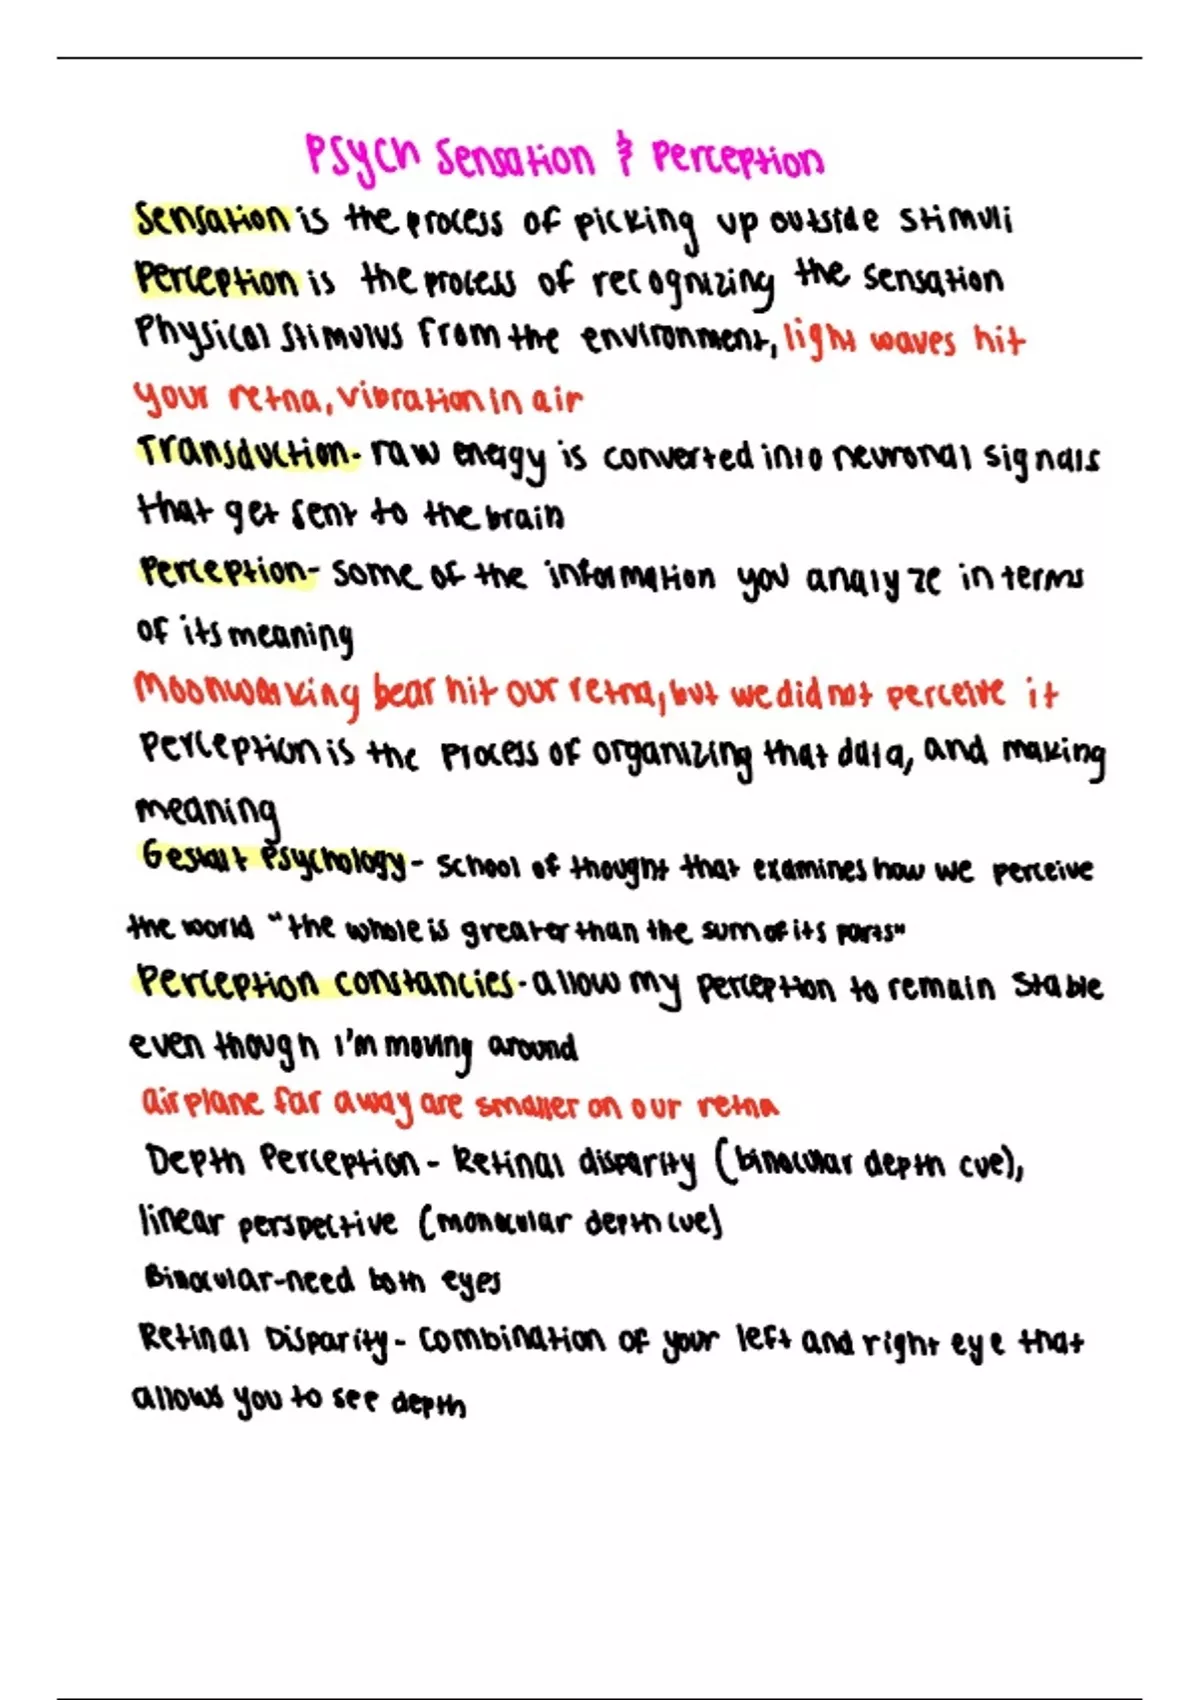 Psych Sensation & Perception
Sensation is the process of picking up outside stimuli
Perception is the process of recognizing the sensation
Physical stimulus from the environment, light waves hit
your retna, vibration in air
Transduction- raw energy is converted into neuronal signals
that get sent to the brain
Perception- some of the information you analyze in terms
of its meaning
Moonwalking bear hit our retna, but we did not perceive it
Perception is the process of organizing that data, and making
meaning
Gestalt Psychology- School of thought that examines how we perceive
the world "the whole is greater than the sum of its parts"
Perception constancies- allow my perception to remain stable
even though I'm moving around
airplane far away are smaller on our retna
Depth Perception- Retinal disparity (binocular depth cue),
linear perspective (monocular depth cue)
Binocular-need both eyes
Retinal Disparity- Combination of your left and right eye that
allows you to see depth